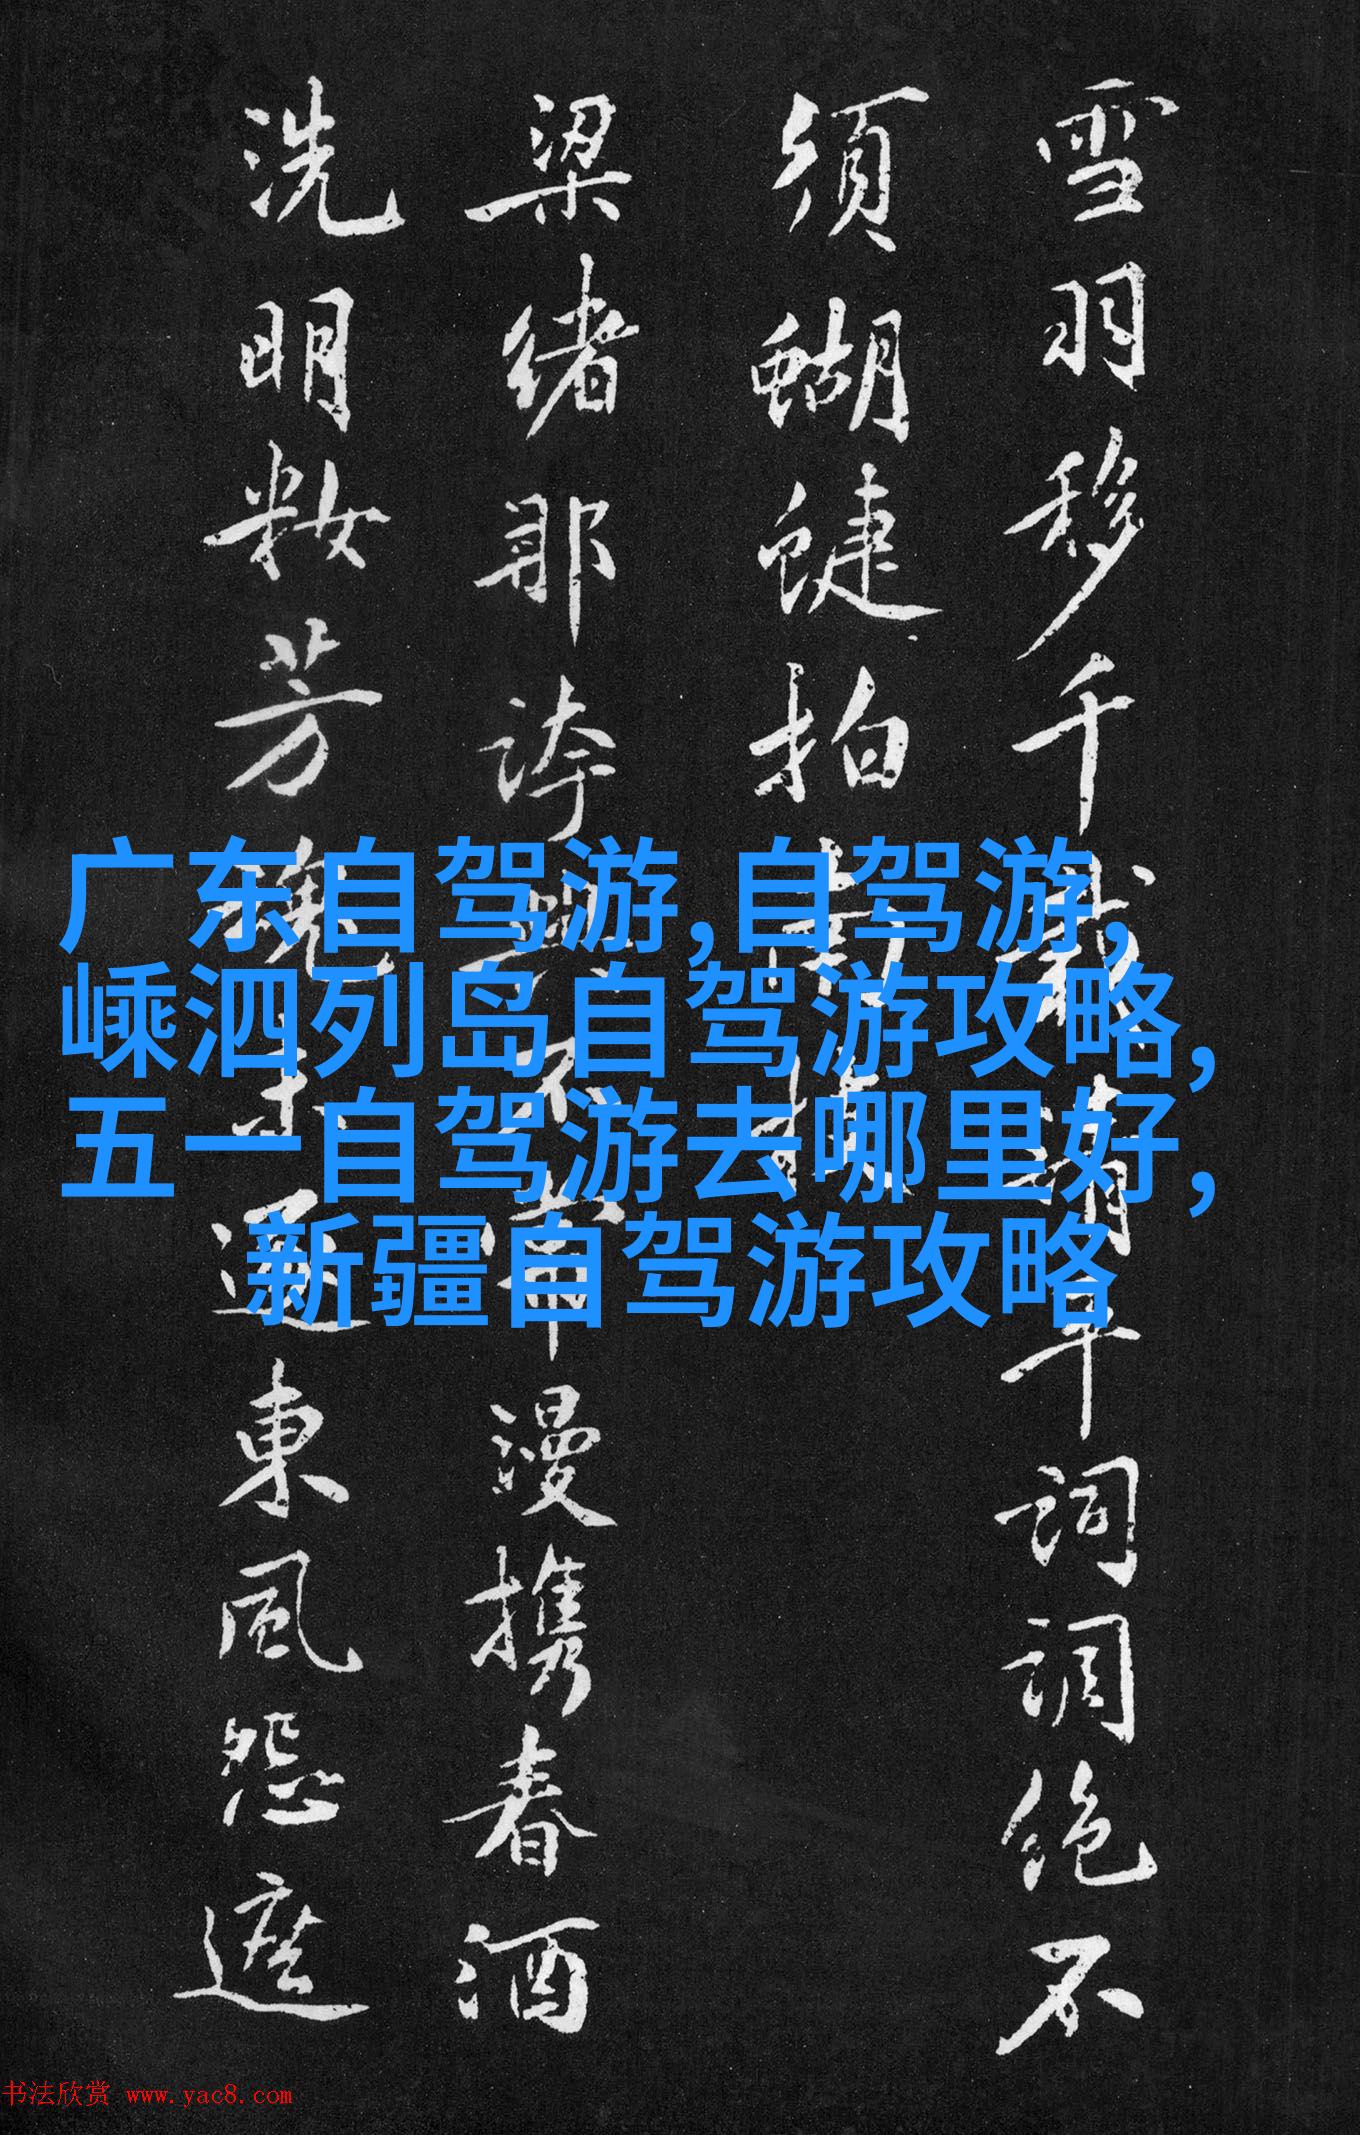 雪羽移千平詞調絶不
須蝴蝶拍
梁緒那誇漫携春酒
洗明籹芳東風怨遮
广东自驾游,自驾游,
嵊泗列岛自驾游攻略,
五一自驾游去哪里好,
新疆自驾游攻略
书法欣赏 www.yac8.com